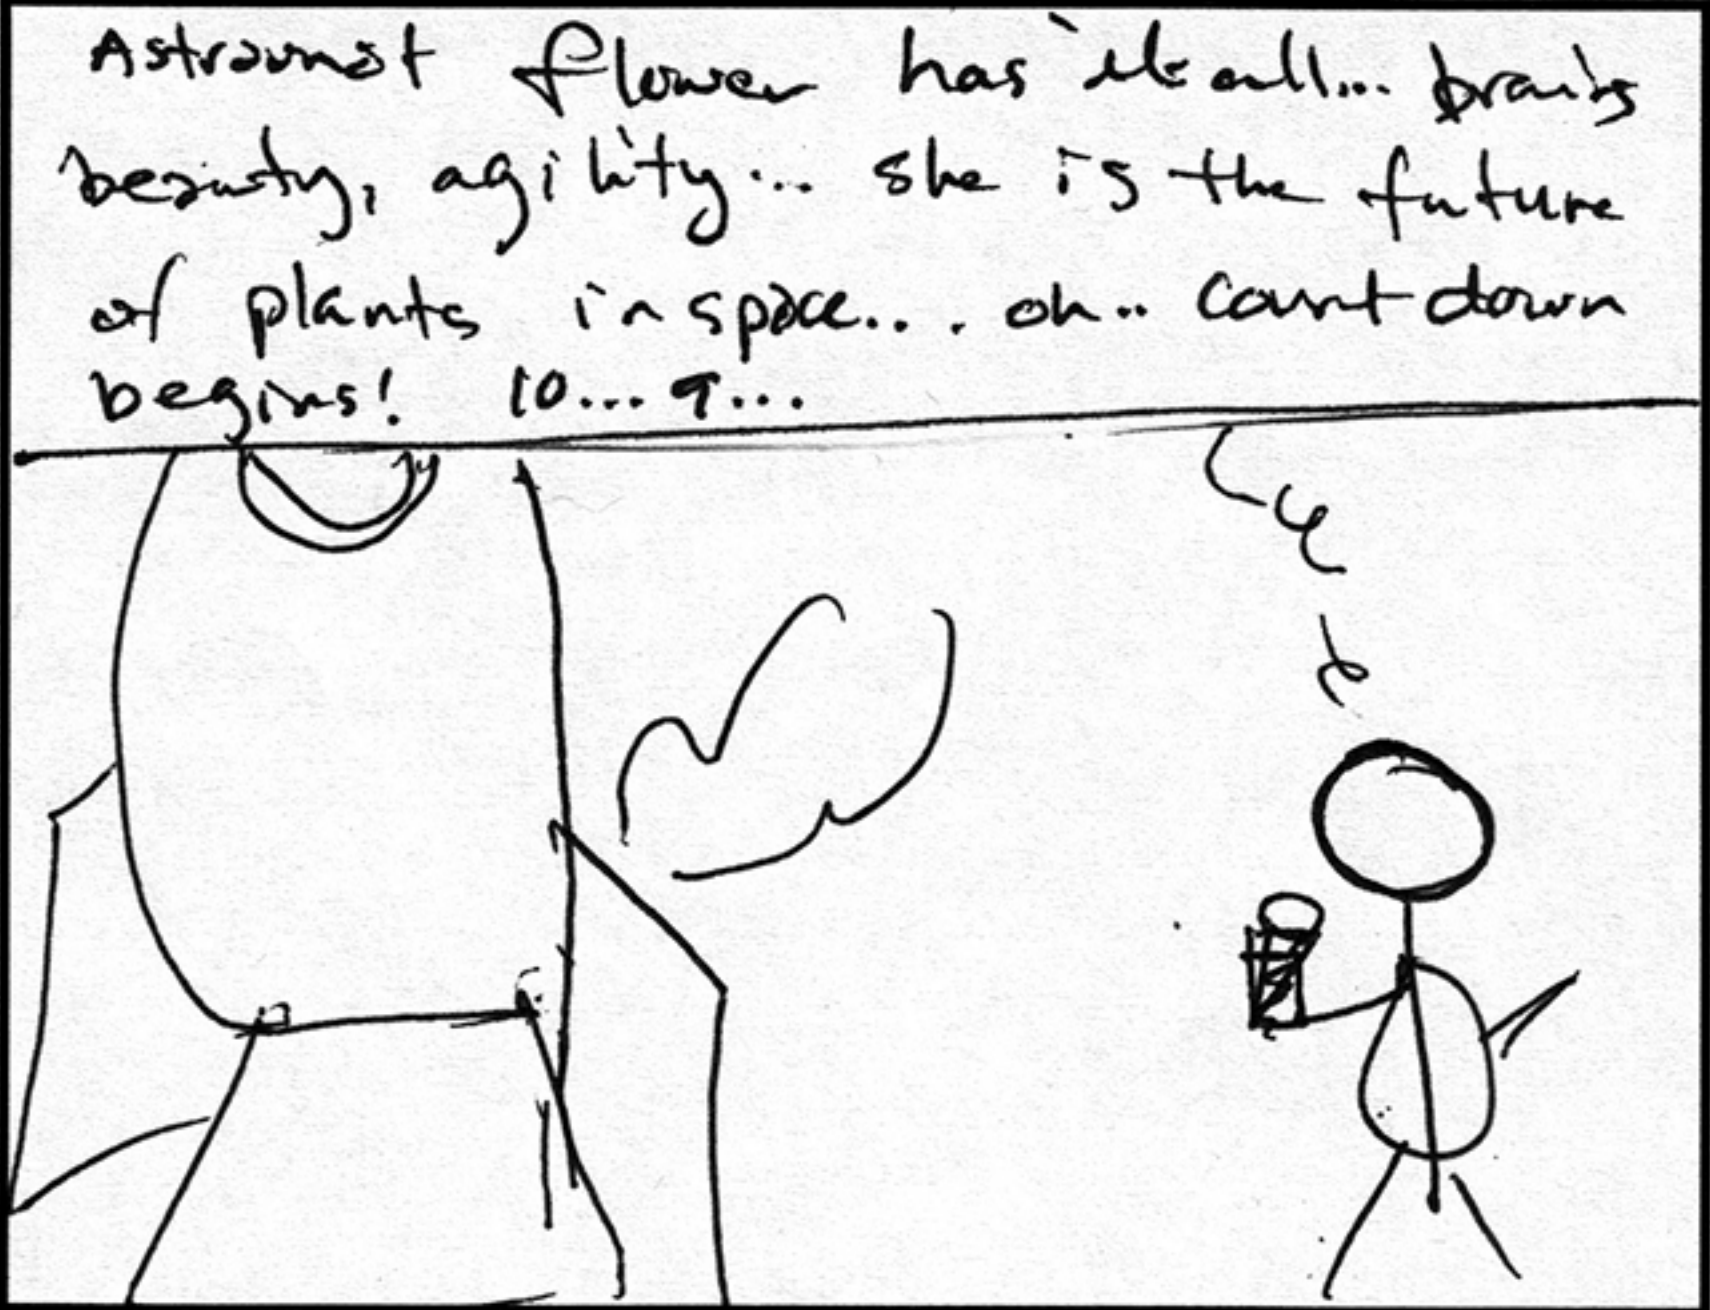 Astronaut flower has it all... brains
beauty, agility... she is the future
of plants in space... oh.. countdown
begins! 10... 9...